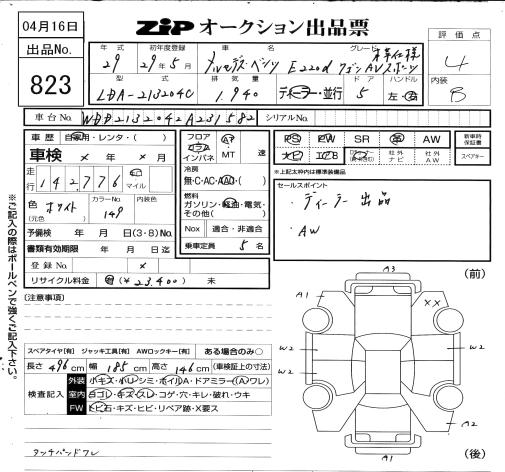 04月16日
ZIP オークション出品票
出品No.
823
評価点
4
内装
B
年式
29
初年度登録
29年5月
車名
メルセデス・ベンツ E220d
グレード
本革仕様
ワゴン AVスポーツ
型式
LDA-213204C
排気量
1,940
ディーラー・並行
ドア
5
ハンドル
左・右
車台No.
WDD2132042A231582
シリアルNo.
車歴
自家用・レンタ・( )
車検 × 年 × 月
走行
142,776
km
マイル
色
(元色)
ホワイト
カラーNo.
149
内装色
予備検 年 月 日(3・8)No.
書類有効期限 年 月 日迄
登録No. ×
リサイクル料金 有(¥23,400) 未
フロア
コラム
インパネ
AT
MT
速
冷房
無・C・AC・AAC・( )
燃料
ガソリン・軽油・電気・
その他( )
Nox 適合・非適合
乗車定員 5 名
PS PW SR 革 AW
社外
ナビ
社外
AW
新車時
保証書
スペアキー
※上記太枠内は標準装備品
セールスポイント
・ディーラー出品
・AW
(注意事項)
スペアタイヤ[有] ジャッキ工具[有] AWロックキー[有] ある場合のみ○
長さ 496cm 幅 185cm 高さ 146cm (車検証上の寸法)
検査記入
外装 小キズ・小凹・シミ・ホイルA・ドアミラー(A・ワレ)
室内 ヨゴレ・キズ・スレ・コゲ・穴・キレ・破れ・ウキ
FW トビ石・キズ・ヒビ・リペア跡・X要ス
タッチパッドワレ
※ご記入の際はボールペンで強くご記入下さい。
(前)
A3
A1
××
W2
W2
W2
W2
A2
A1
(後)